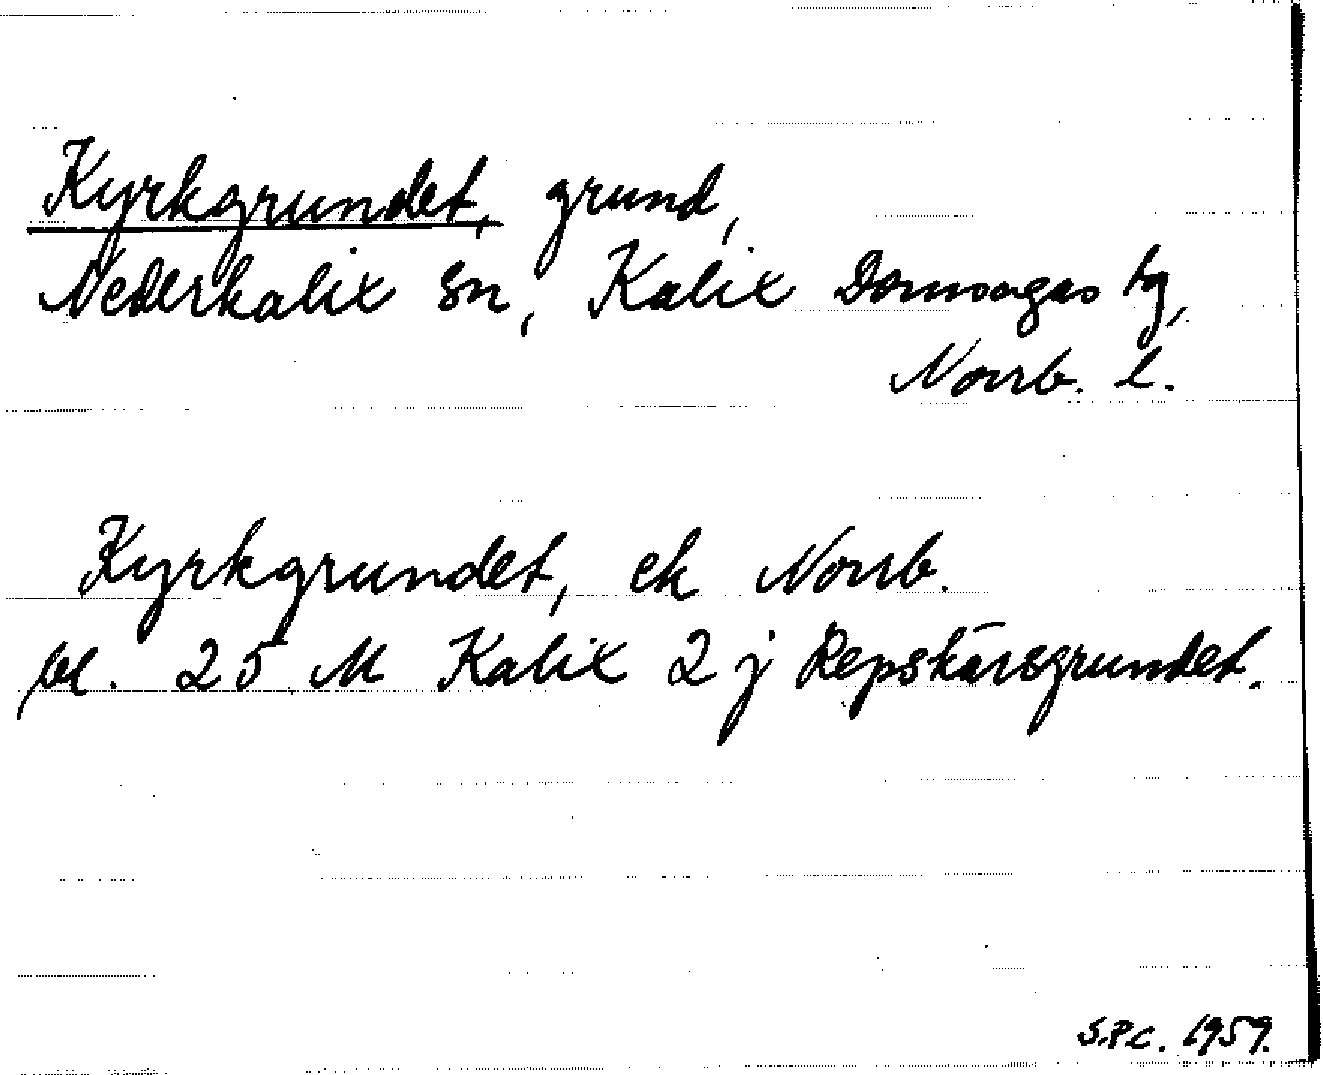 Kyrkgrundet, grund,
Nederkalix sn, Kalix Domsagas tg,
Norrb. l.
Kyrkgrundet, ek Norrb.
bl. 25 M Kalix 2 j Repskärsgrundet.
S.P.C. 1959.